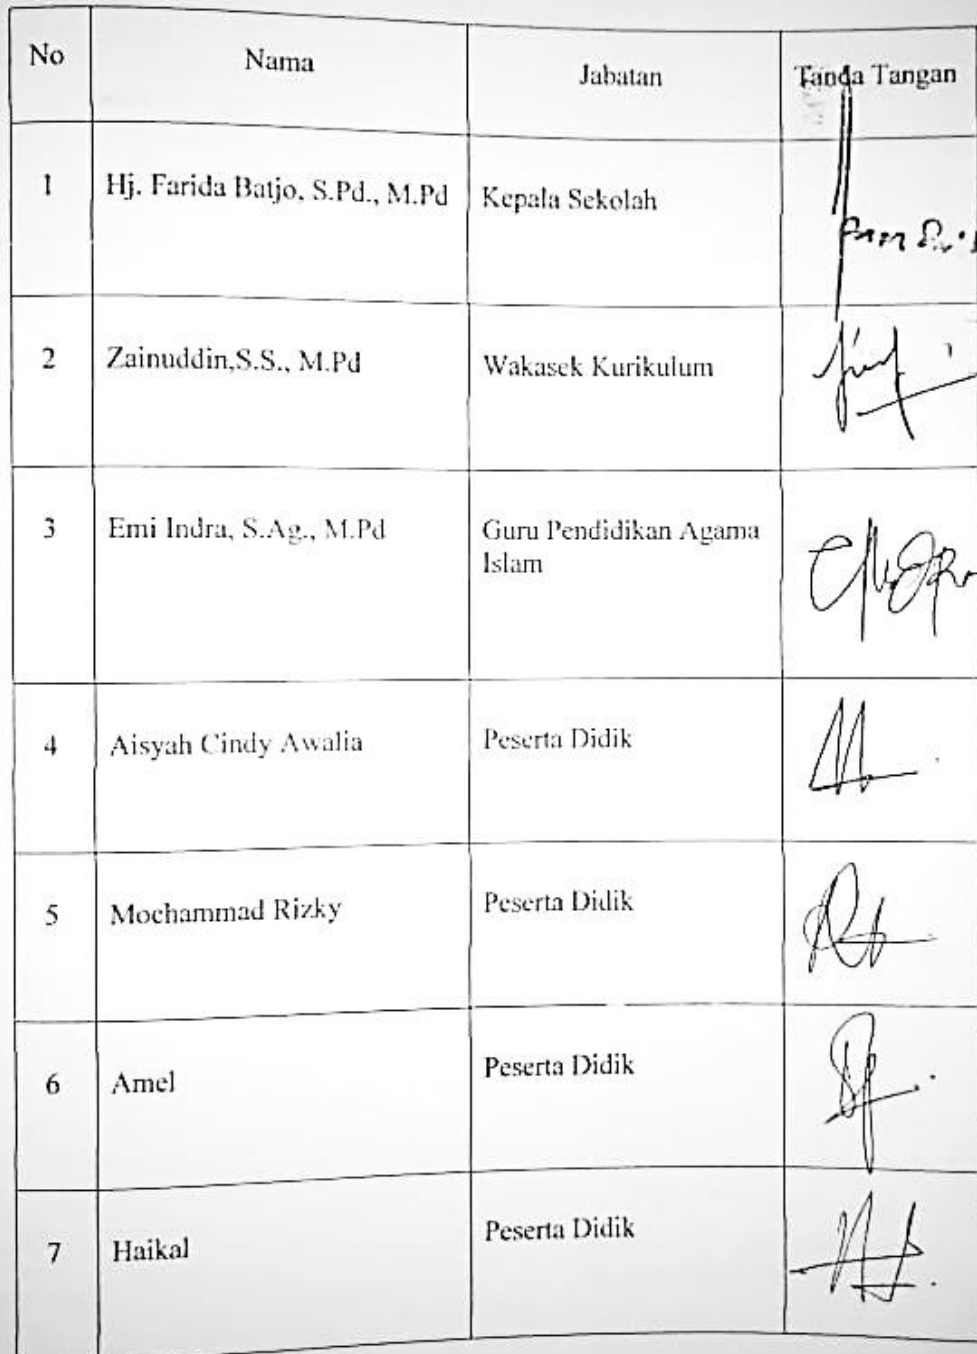 No Nama Jabatan Tanda Tangan
1 Hj. Farida Batjo, S.Pd., M.Pd Kepala Sekolah
2 Zainuddin,S.S., M.Pd Wakasek Kurikulum
3 Emi Indra, S.Ag., M.Pd Guru Pendidikan Agama
Islam
4 Aisyah Cindy Awalia Peserta Didik
5 Mochammad Rizky Peserta Didik
6 Amel Peserta Didik
7 Haikal Peserta Didik